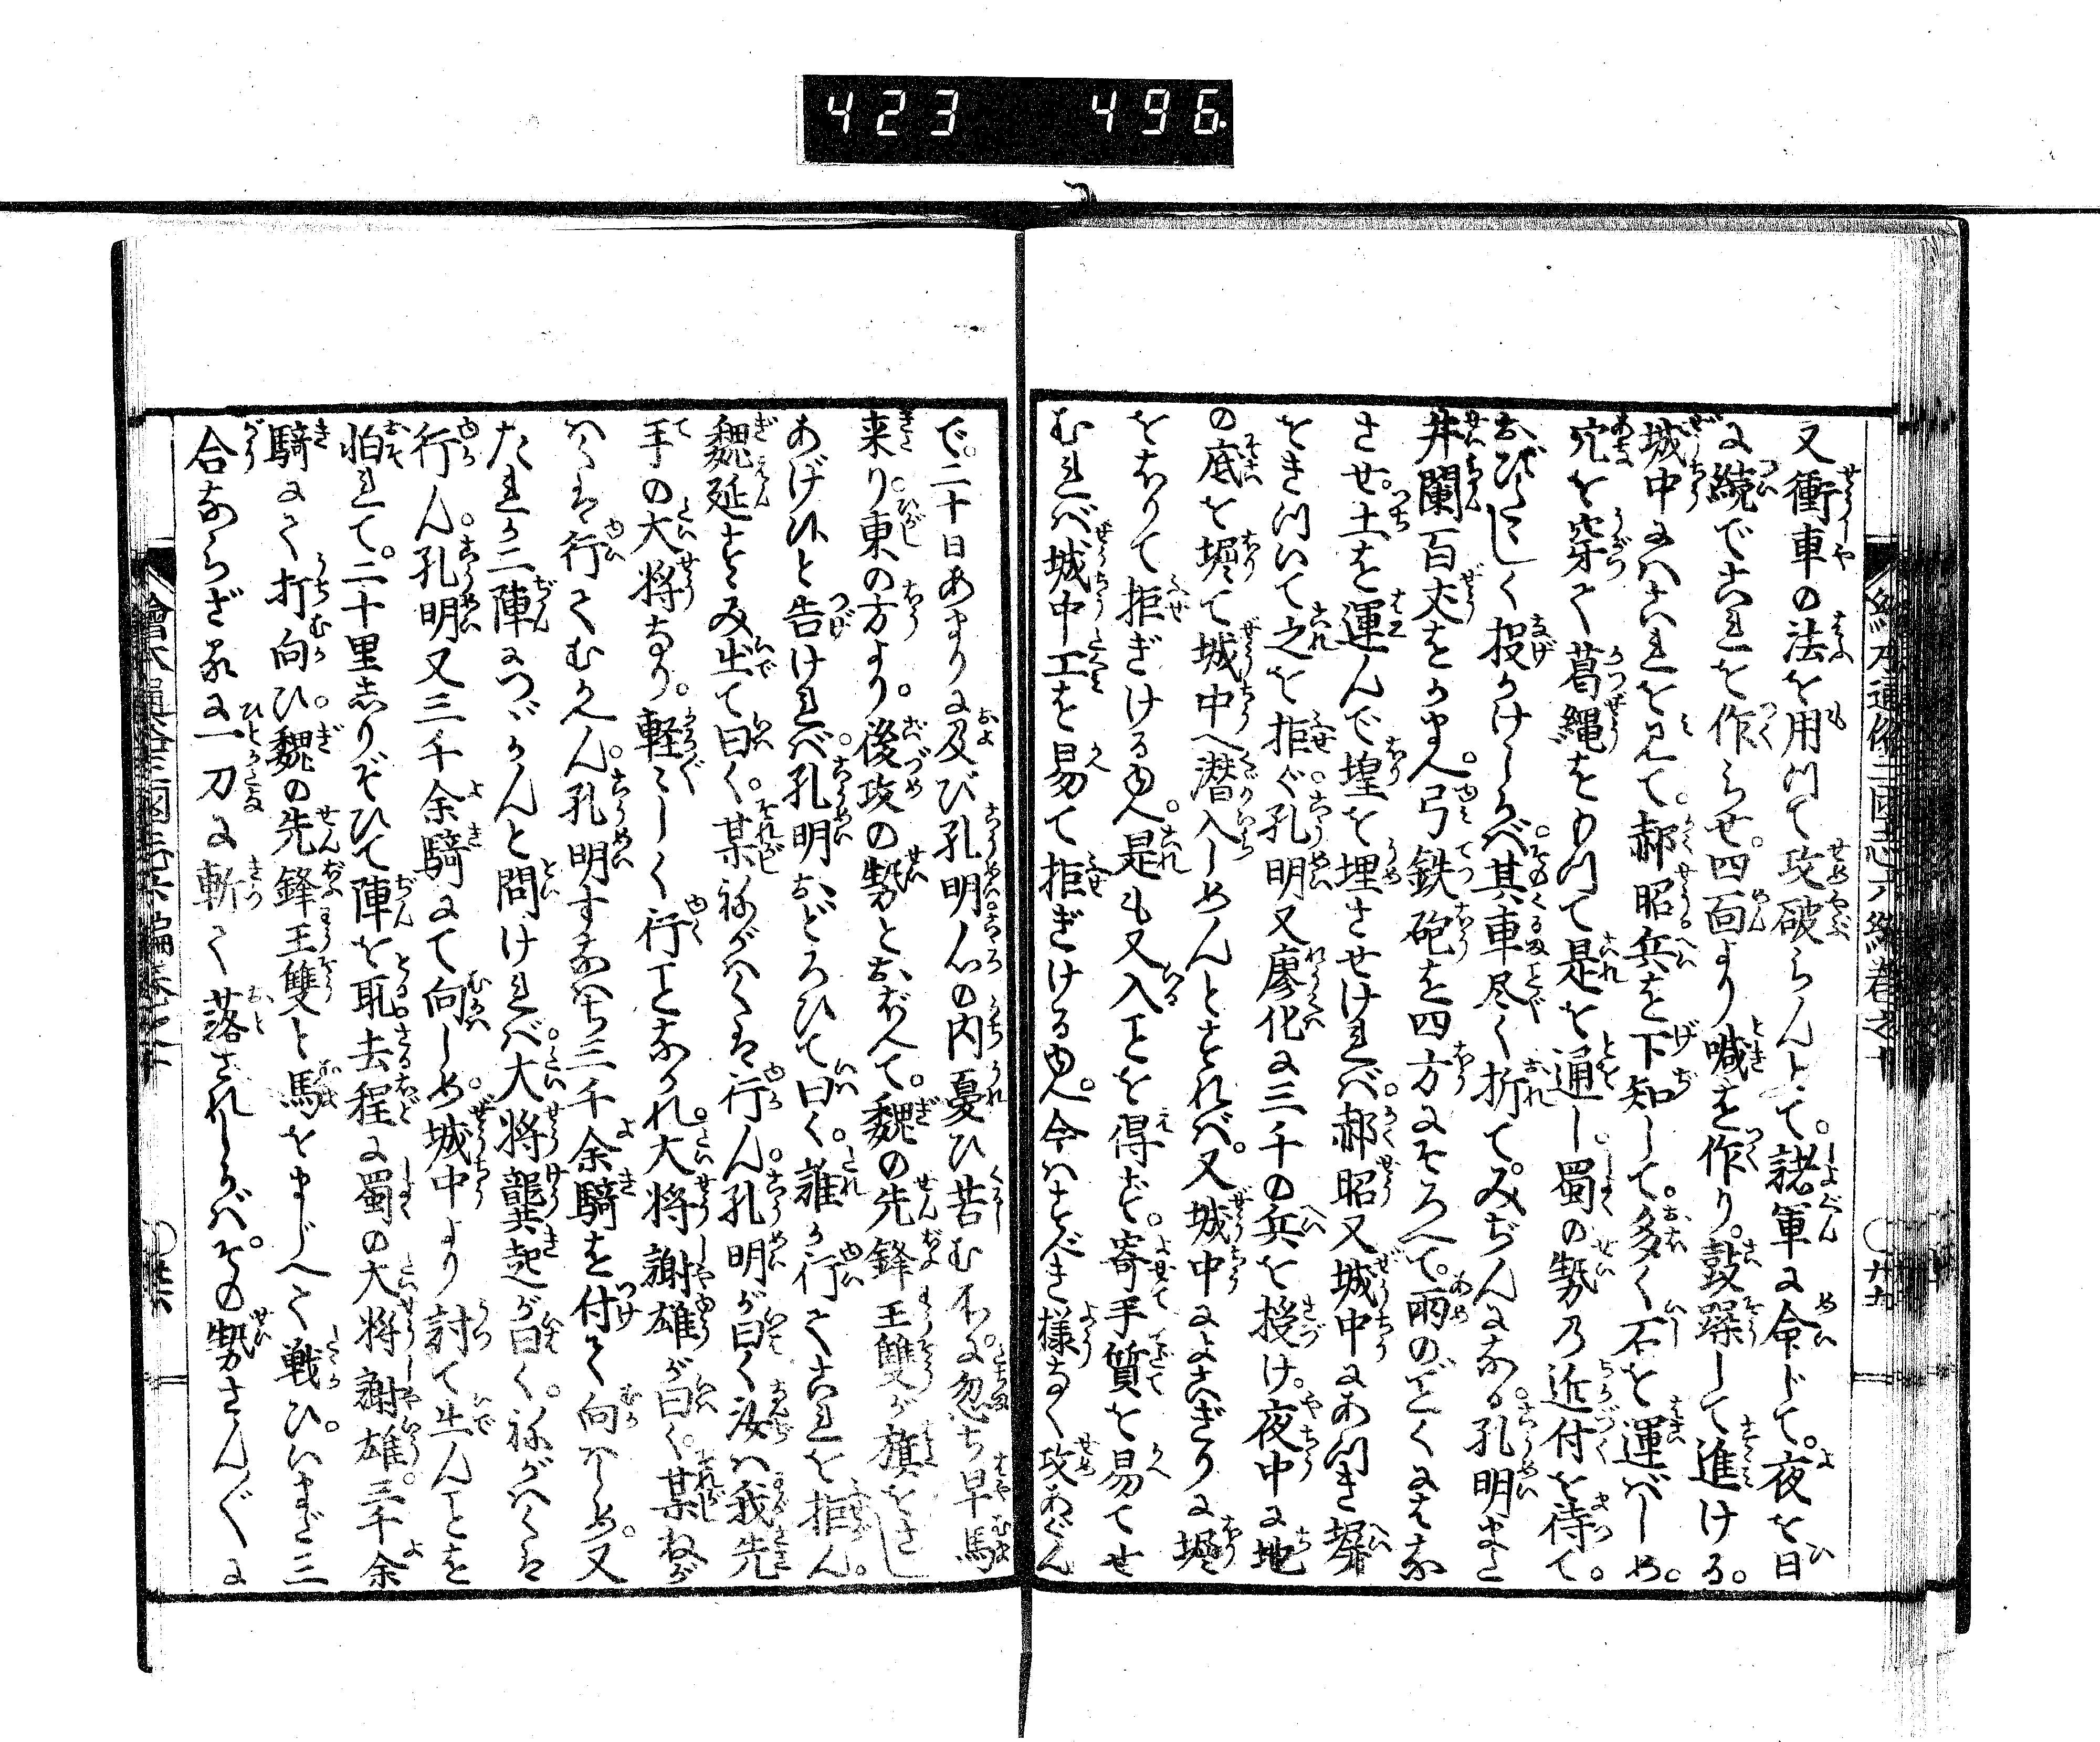 423 496
又衝車の法を用ひて攻破らんとて。諸軍に命じて。夜を日
に続でこれを作らせ。四面より喊を作り。鼓躁して進ける。
城中にはこれを見て。郝昭兵を下知して。多く石を運ばしめ。
穴を穿て葛縄をもつて是を通し。蜀の勢の近付を待て。
おびたゞしく投かけしかば。其車尽く折て。みぢんになる。孔明また
井闌百丈をかまへ。弓鉄砲を四方にそろへて。雨のごとくにはな
させ。土を運んで堭を埋させければ。郝昭又城中にあつき塀
をきづいて之を拒ぐ。孔明又廖化に三千の兵を授け。夜中に地
の底を堀て城中へ潜入しめんとすれば。又城中によこぎりに堀
をほりて拒ぎけるゆへ。是も又入ことを得ず。寄手質を易てせ
むれば城中工を易て拒ぎけるゆへ。今はすべき様なく攻あぐん
で。二十日あまりに及び孔明心の内憂ひ苦む所に。忽ち早馬
来り。東の方より。後攻の勢とおぼへて。魏の先鋒王雙が旗をさし
あげ候と告ければ。孔明おどろひて曰く。誰か行てこれを拒ん。
魏延すゝみ出て曰く。某ねがはくは行ん。孔明が曰く汝は我先
手の大将なり。軽々しく行ことなかれ。大将謝雄が曰く。某ねが
はくは行てむかへん。孔明すなはち三千余騎を付て向はしめ。又
たれか二陣につゞかんと問ければ。大将龔起が曰く。ねがはくは
行ん。孔明又三千余騎にて向しめ。城中より討て出んことを
怕れて。二十里しりぞひて陣を取る。去程に蜀の大将謝雄三千余
騎にて打向ひ。魏の先鋒王雙と馬をまじへて戦ひ。いまだ三
合ならざるに一刀に斬て落されしかば。その勢さんぐに